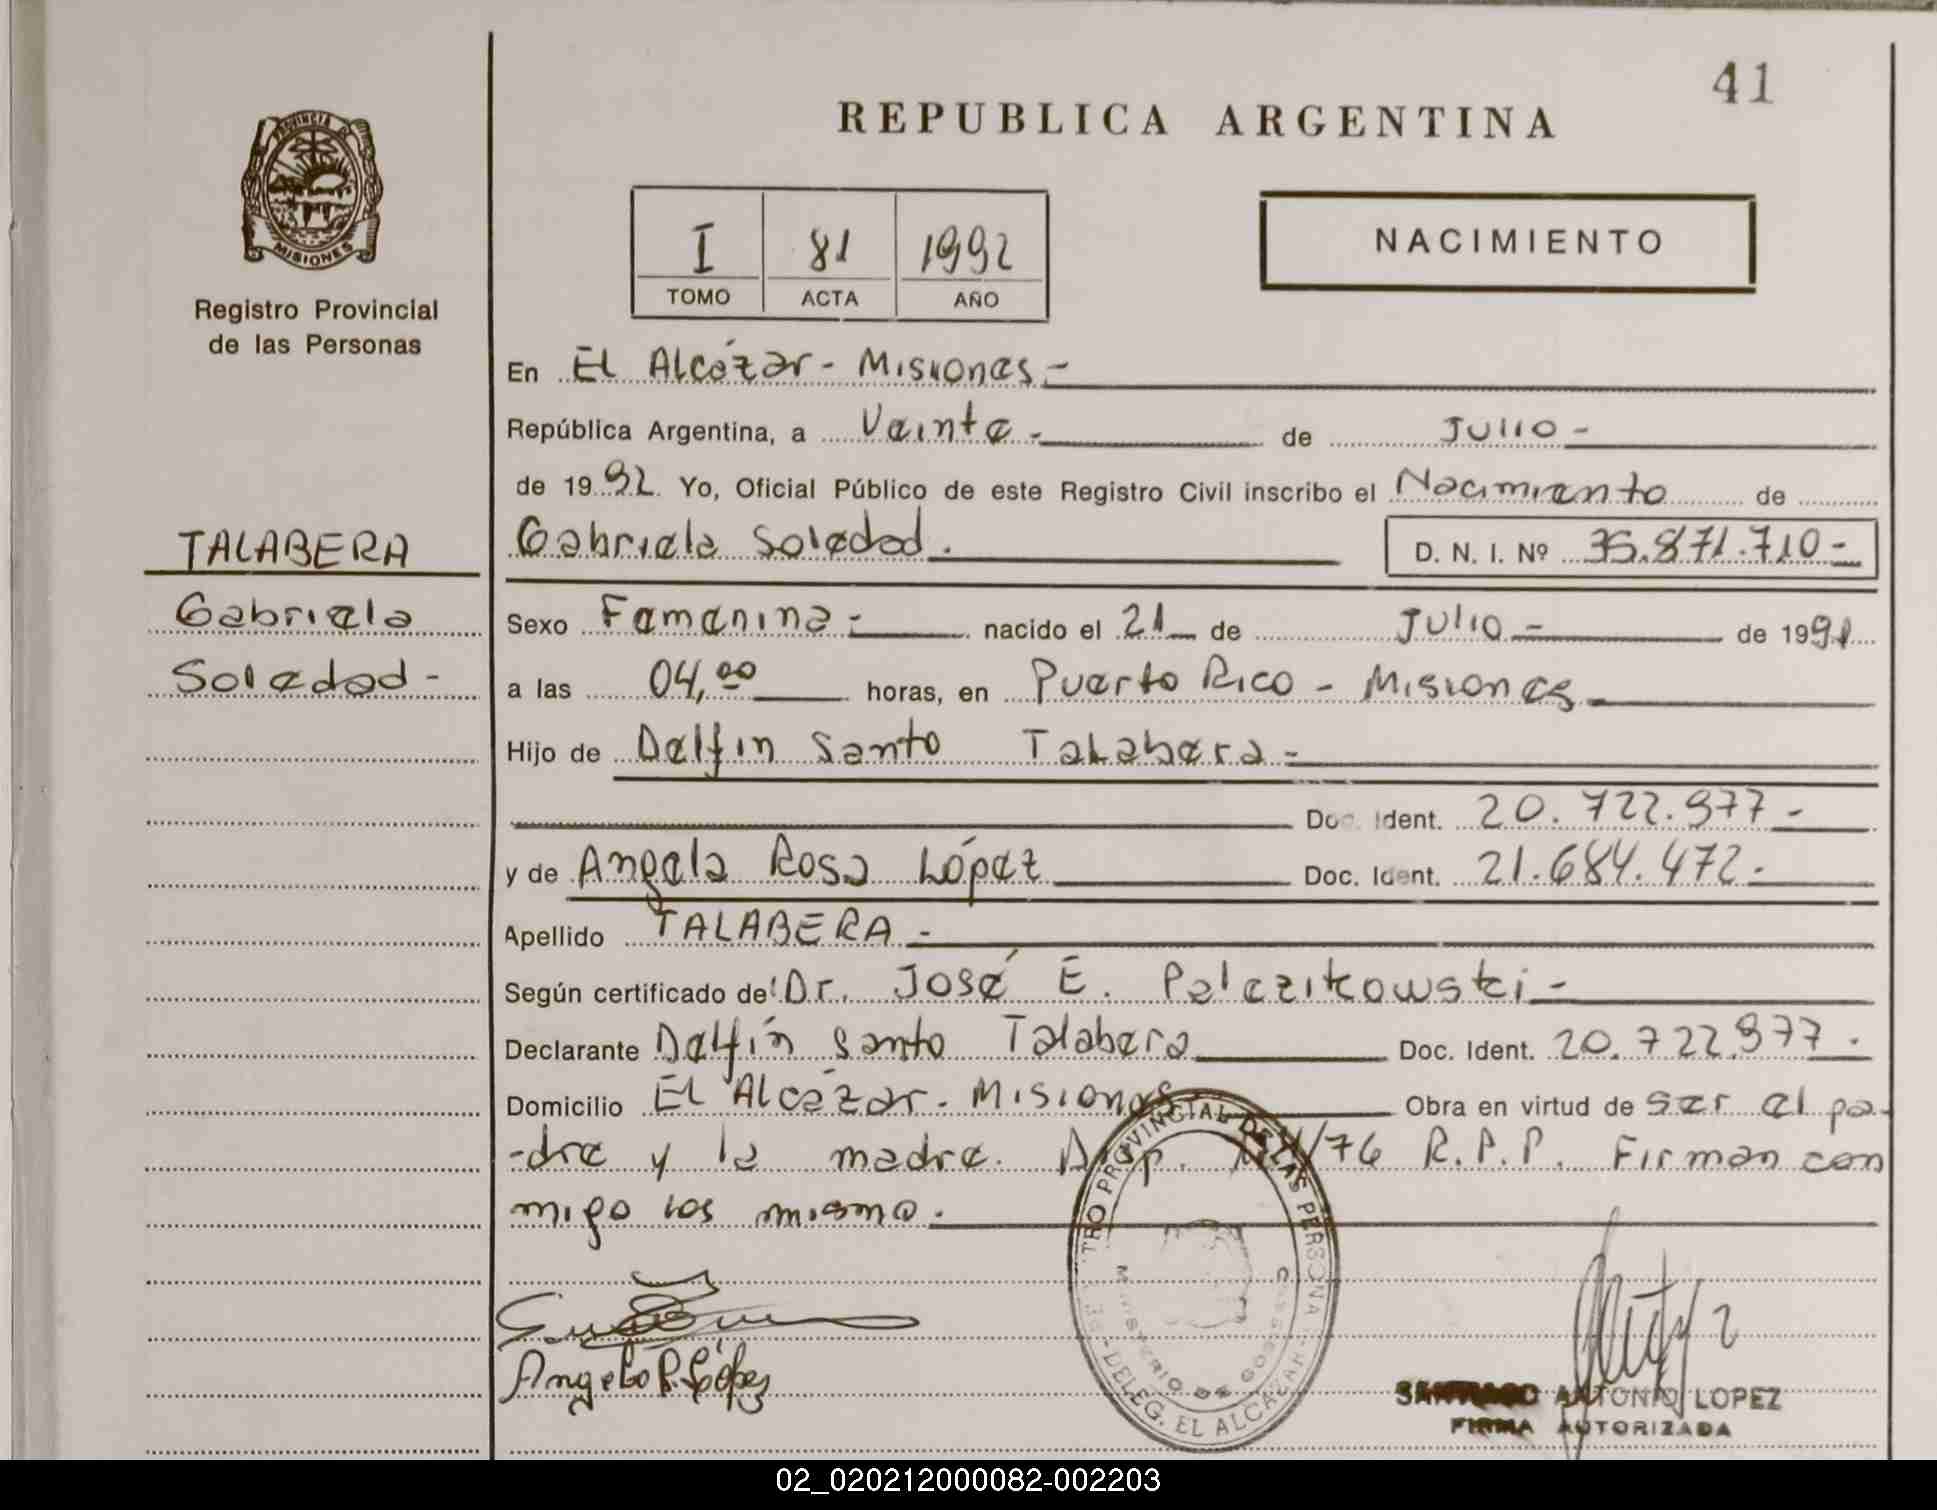 41
REPUBLICA ARGENTINA
PROVINCIA DE
MISIONES
Registro Provincial
de las Personas
I 81 1992
TOMO ACTA AÑO
NACIMIENTO
En El Alcázar - Misiones -
República Argentina, a Veinte - de Julio -
de 1992. Yo, Oficial Público de este Registro Civil inscribo el Nacimiento de
TALABERA
Gabriela Soledad. D. N. I. Nº 35.871.710 -
Gabriela
Soledad -
Sexo Femenina - nacido el 21 de Julio - de 1991
a las 04,00 horas, en Puerto Rico - Misiones
Hijo de Delfin Santo Talabera -
Doc. Ident. 20.722.977 -
y de Angela Rosa López Doc. Ident. 21.684.472 -
Apellido TALABERA -
Según certificado de Dr. José E. Palczikowski -
Declarante Delfín Santo Talabera Doc. Ident. 20.722.977 .
Domicilio El Alcázar - Misiones Obra en virtud de ser el pa-
-dre y la madre. Disp. /76 R.P.P. Firman con
migo los mismo.
TRO PROVINCIAL DE LAS PERSONA
MINISTERIO DE GOBIERNO
DELEG. EL ALCAZAR
Angela R. López
SANTIAGO ANTONIO LOPEZ
FIRMA AUTORIZADA
02_020212000082-002203